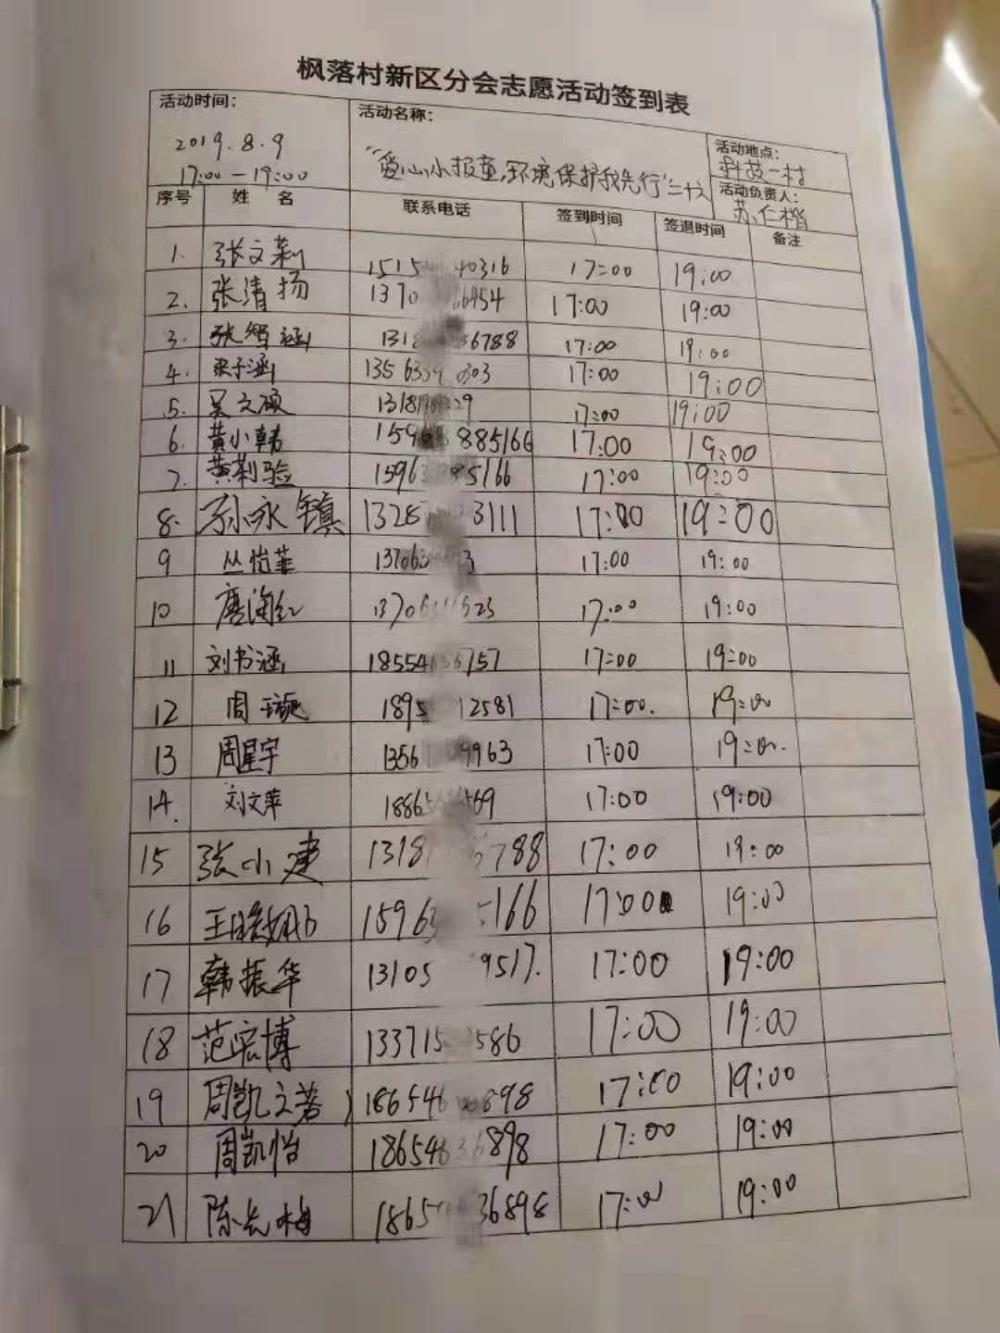 枫落村新区分会志愿活动签到表
活动时间:
2019.8.9
17:00-19:00
活动名称:
"爱心小报童,环境保护我先行"二十六
活动地点:
科苑一村
活动负责人:
苏仁楷
序号 姓名 联系电话 签到时间 签退时间 备注
1. 张文莉 1515 40316 17:00 19:00
2. 张清扬 1370 6454 17:00 19:00
3. 张智涵 1318 6788 17:00 19:00
4. 张子涵 1356339 0303 17:00 19:00
5. 吴文硕 1318 29 17:00 19:00
6. 黄小韩 159 885166 17:00 19:00
7. 黄莉 15963 85166 17:00 19:00
8. 孙永镇 1328 3111 17:00 19:00
9 丛怡菲 137063 3 17:00 19:00
10 唐海红 13706 523 17:00 19:00
11 刘书涵 18554 757 17:00 19:00
12 周璇 1895 12581 17:00. 19:00
13 周星宇 1356 9963 17:00 19:00.
14. 刘文萍 1886 569 17:00 19:00
15 张小建 1318 788 17:00 19:00
16 王 15963 5166 17:00 19:00
17 韩振华 13105 9517. 17:00 19:00
18 范宏博 133715 586 17:00 19:00
19 周凯文 186546 898 17:00 19:00
20 周凯怡 18654636898 17:00 19:00
21 陈长梅 1865 36898 17:00 19:00